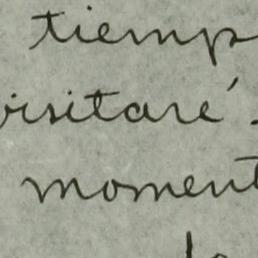 tiemp
visitaré.
moment